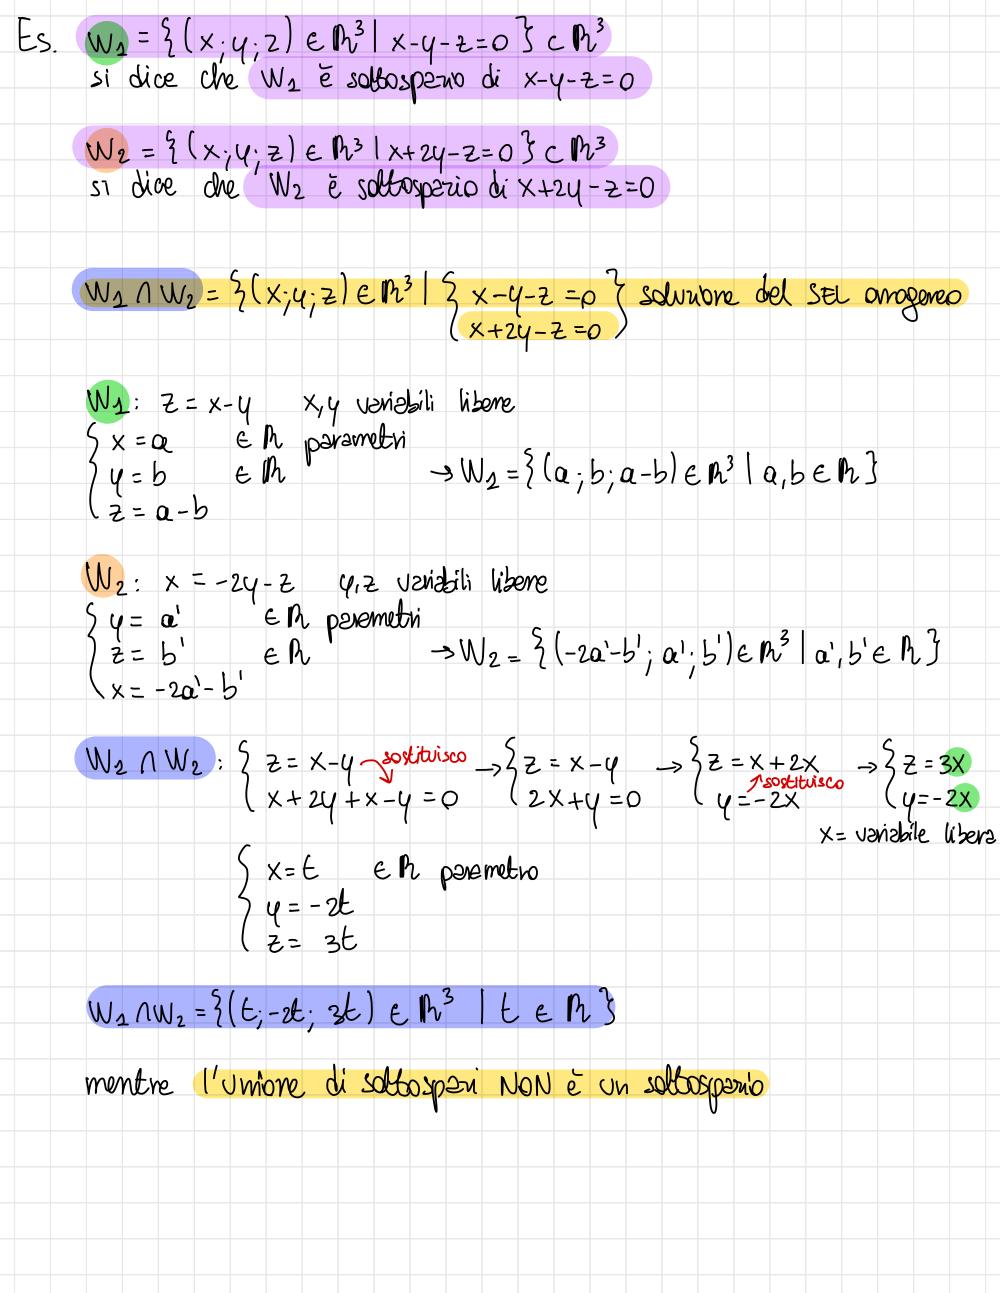 Es. W₁ = {(x;y;z) ∈ ℝ³ | x-y-z=0} ⊂ ℝ³
si dice che W₁ è sottospazio di x-y-z=0
W₂ = {(x;y;z) ∈ ℝ³ | x+2y-z=0} ⊂ ℝ³
si dice che W₂ è sottospazio di x+2y-z=0
W₁ ∩ W₂ = {(x;y;z) ∈ ℝ³ | { x-y-z=0 } soluzione del SEL omogeneo
x+2y-z=0
W₁: z = x-y x,y variabili libere
x = a ∈ ℝ parametri
y = b ∈ ℝ → W₁ = {(a;b;a-b) ∈ ℝ³ | a,b ∈ ℝ}
z = a-b
W₂: x = -2y-z y,z variabili libere
y = a' ∈ ℝ parametri
z = b' ∈ ℝ → W₂ = {(-2a'-b'; a'; b') ∈ ℝ³ | a',b' ∈ ℝ}
x = -2a'-b'
W₁ ∩ W₂: { z = x-y sostituisco → { z = x-y → { z = x+2x → { z = 3x
x+2y+x-y=0 2x+y=0 y=-2x sostituisco y=-2x
x = variabile libera
x=t ∈ ℝ parametro
y = -2t
z = 3t
W₁∩W₂={(t;-2t; 3t) ∈ ℝ³ | t ∈ ℝ}
mentre l'unione di sottospazi NON è un sottospazio